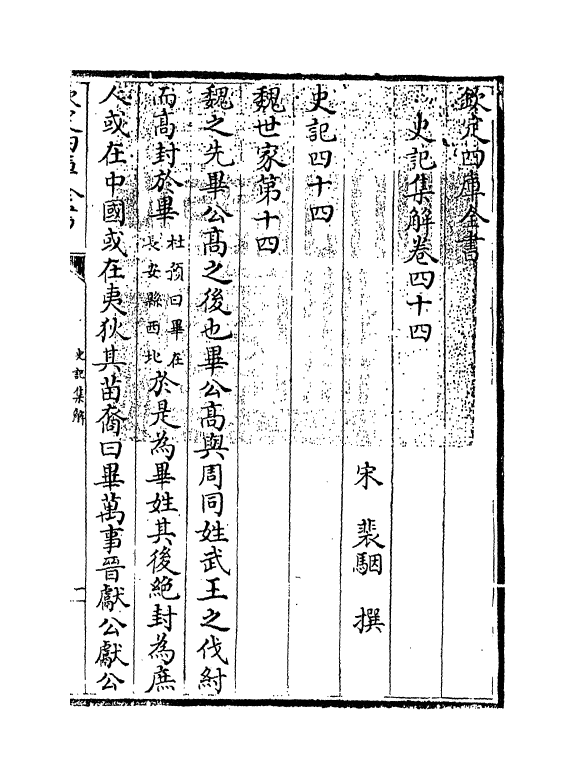 欽定四庫全書
史記集解卷四十四
宋 裴駰 撰
史記四十四
魏世家第十四
魏之先畢公髙之後也畢公髙與周同姓武王之伐紂
而髙封於畢杜預曰畢在長安縣西北於是為畢姓其後絶封為庶
人或在中國或在夷狄其苗裔曰畢萬事晉獻公獻公
史記集解